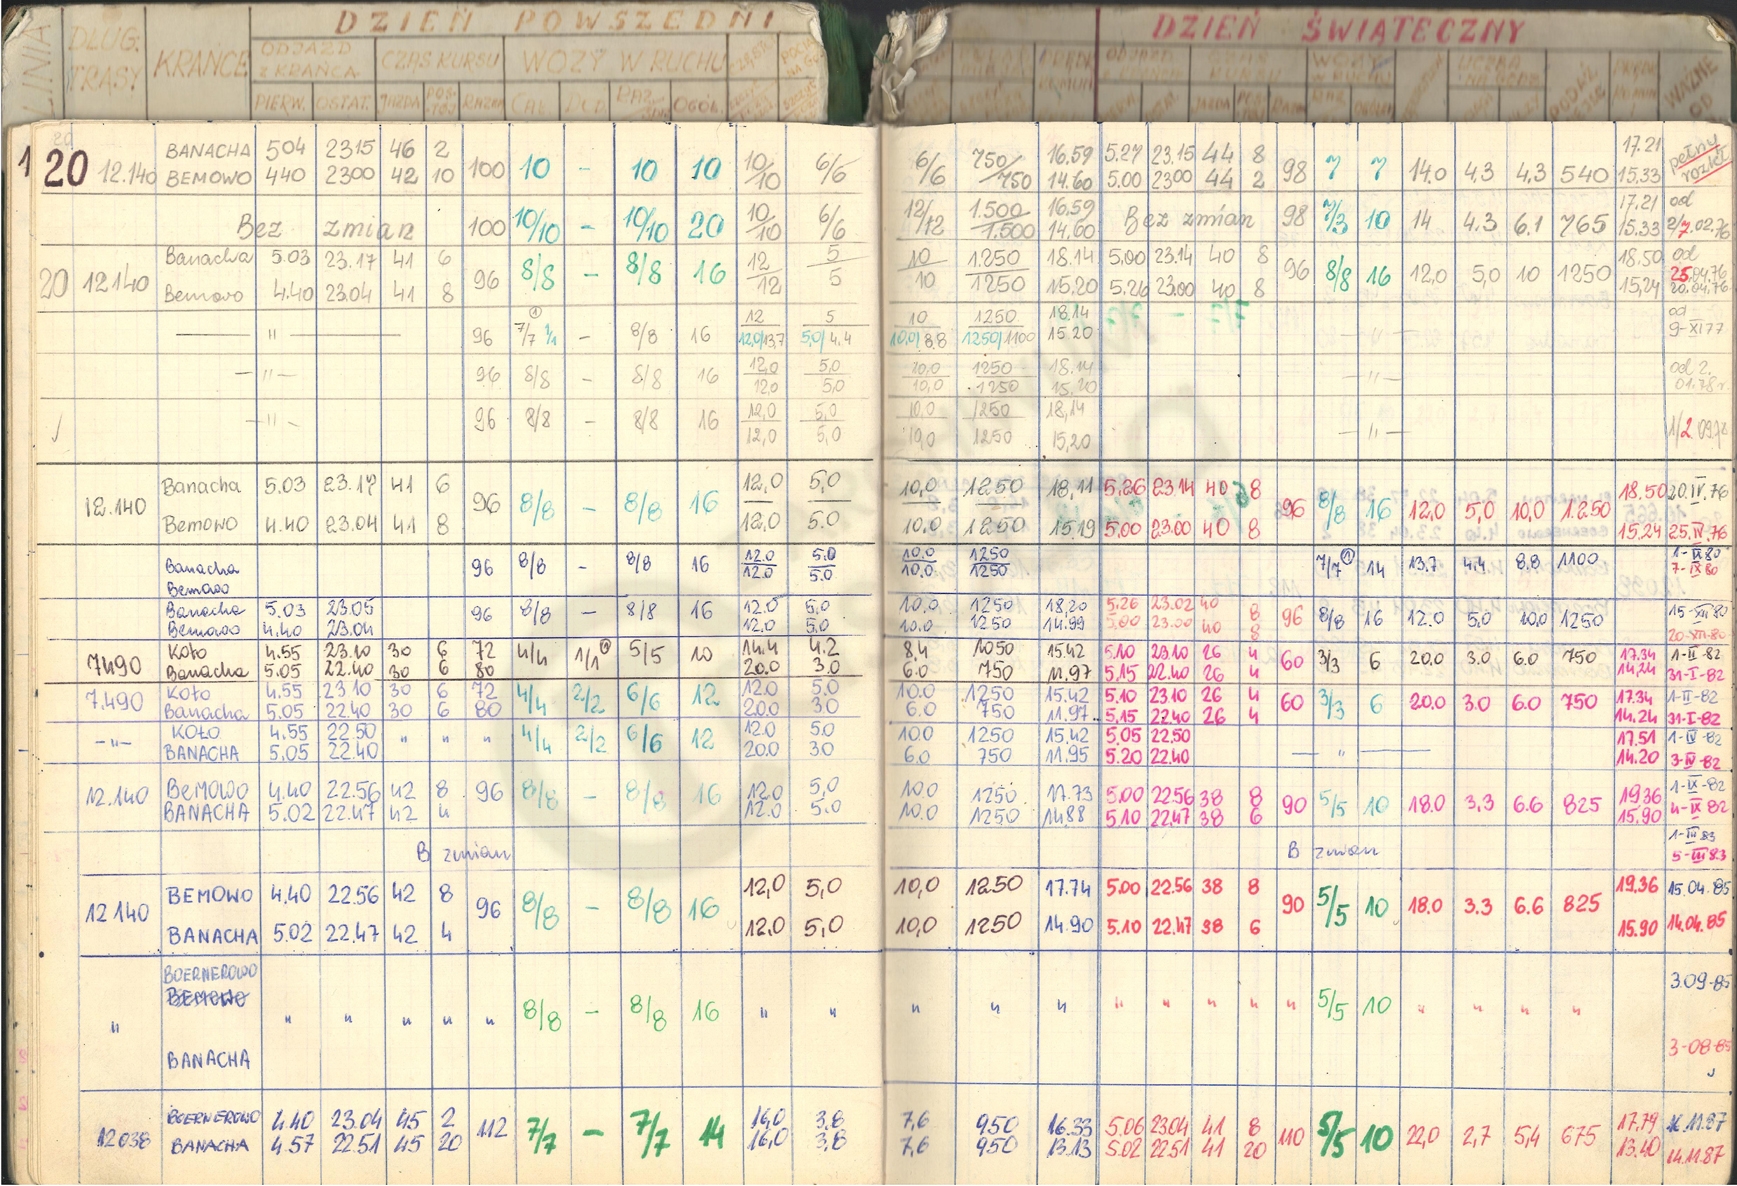 DZIEŃ POWSZEDNI DZIEŃ ŚWIĄTECZNY
LINIA DŁUG. TRASY KRAŃCE ODJAZD Z KRAŃCA CZAS KURSU WOZY W RUCHU
PIERW. OSTAT. JAZDA RAZEM OGÓŁ. WAŻNE OD
1 20 12.140 BANACHA 504 2315 46 2 100 10 - 10 10 10/10 6/6 6/6 750/750 16.59 5.27 23.15 44 8 98 7 7 14.0 4.3 4,3 540 17.21 pełny rozkł
BEMOWO 440 2300 42 10 14.60 5.00 2300 44 2 15.33
Bez zmian 100 10/10 - 10/10 20 10/10 6/6 12/12 1.500/1.500 16.59 14.60 Bez zmian 98 7/3 10 14 4.3 6.1 765 17.21 15.33 od 2/7.02.76
20 12.140 Banacha 5.03 23.17 41 6 96 8/8 - 8/8 16 12/12 5/5 10/10 1250/1250 18.14 5.00 23.14 40 8 96 8/8 16 12,0 5,0 10 1250 18,50 od 25.04.76
Bemowo 4.40 23.04 41 8 15.20 5.26 23.00 40 8 15,24 20.04.76
— " — 96 7/7 1/1 - 8/8 16 12 5 10 1250 18.14 od
12.0/13,7 5,0/4.4 10,0/8.8 1250/1100 15 20 9-XI 77
— " — 96 8/8 - 8/8 16 12,0 5,0 10,0 1250 18.14 — " — od 2.
12,0 5,0 10,0 1250 15.20 01.78r.
— " — 96 8/8 - 8/8 16 12,0 5,0 10.0 1250 18,14 — " —
12,0 5,0 10,0 1250 15,20
12.140 Banacha 5.03 23.17 41 6 96 8/8 - 8/8 16 12,0 5,0 10,0 1250 18,11 5.26 23.14 40 8 96 8/8 16 12,0 5,0 10,0 1.250 18.50 20.IV.76
Bemowo 4.40 23.04 41 8 12.0 5.0 10.0 1250 15.19 5,00 23.00 40 8 15.24 25.IV.76
Banacha 96 8/8 - 8/8 16 12.0 5.0 10.0 1250 7/7 14 13.7 4.4 8.8 1100 1-IX 80
Bemowo 12.0 5.0 10.0 1250 7-IX 80
Banacha 5.03 23.05 96 8/8 - 8/8 16 12.0 5,0 10.0 1250 18,20 5.26 23.02 40 8 96 8/8 16 12.0 5,0 10,0 1250 15-XII 80
Bemowo 4.40 23.04 12.0 5,0 10.0 1250 14.99 5.00 23.00 40 8 20-XII-80
7490 Koło 4.55 23.10 30 6 72 4/4 1/1 5/5 10 14.4 4.2 8,4 1050 15.42 5.10 23.10 26 4 60 3/3 6 20.0 3.0 6.0 750 17.34 1-II-82
Banacha 5.05 22.40 30 6 80 20.0 3.0 6.0 750 11.97 5.15 22.40 26 4 14.24 31-I-82
7.490 Koło 4.55 23 10 30 6 72 4/4 2/2 6/6 12 12.0 5.0 10.0 1250 15.42 5.10 23.10 26 4 60 3/3 6 20.0 3.0 6.0 750 17.34 1-II-82
Banacha 5.05 22.40 30 6 80 20.0 3.0 6.0 750 11.97 5.15 22.40 26 4 14.24 31-I-82
- " - Koło 4.55 22 50 " " " 4/4 2/2 6/6 12 12.0 5.0 10.0 1250 15.42 5.05 22.50 — " — 17.51 1-IV-82
BANACHA 5,05 22.40 20.0 30 6.0 750 11.95 5.20 22.40 14.20 3-IV-82
12.140 BEMOWO 4.40 22.56 42 8 96 8/8 - 8/8 16 12.0 5,0 10.0 1250 17.73 5.00 22.56 38 8 90 5/5 10 18.0 3.3 6.6 825 19.36 1-IX-82
BANACHA 5.02 22.47 42 4 12.0 5.0 10.0 1250 14.88 5.10 22.47 38 6 15.90 4-IX 82
B zmian B zmian 1-III 83
5-III 83
12 140 BEMOWO 4.40 22.56 42 8 96 8/8 - 8/8 16 12,0 5,0 10,0 12.50 17.74 5.00 22.56 38 8 90 5/5 10 18.0 3.3 6.6 825 19.36 15.04.85
BANACHA 5.02 22.47 42 4 12.0 5,0 10,0 1250 14.90 5.10 22.47 38 6 15.90 14.04.85
BOERNEROWO
BEMOWO 3.09-85
" " " " " " 8/8 - 8/8 16 " " " " " " " " " " 5/5 10 " " " "
BANACHA 3-08-85
12038 BOERNEROWO 4.40 23.04 45 2 112 7/7 - 7/7 14 16,0 3.8 7,6 950 16.33 5.06 23.04 41 8 110 5/5 10 22,0 2,7 5,4 675 17.79 16.11.87
BANACHA 4.57 22.51 45 20 16,0 3,8 7,6 950 13.13 5.02 22.51 41 20 13.40 14.11.87